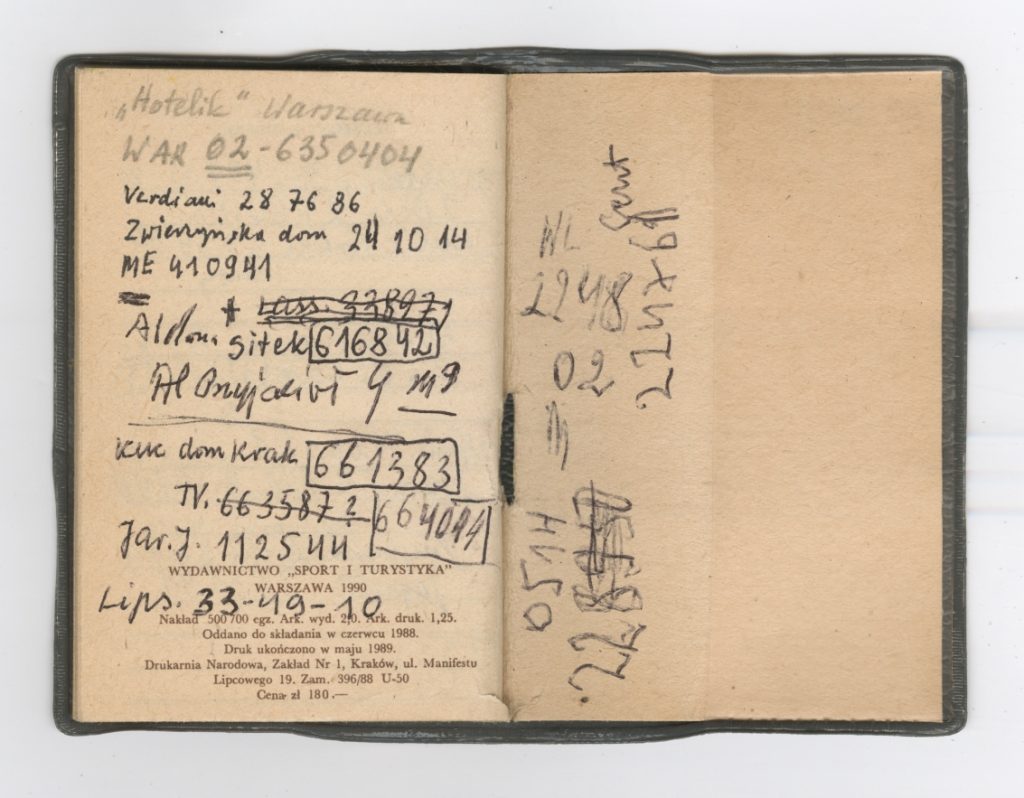 „Hotelik“ Warszawa
WAR 02-6350404
Verdiani 28 76 86
Zwierzyńska dom 24 10 14
ME 410941
33897
Aldona Sitek 616842
Al Przyjaciół 4 m9
dom Krak 661383
TV. 6635872 664044
Jar.J. 112544
WYDAWNICTWO „SPORT I TURYSTYKA”
WARSZAWA 1990
Lips. 33-49-10
Nakład 500 700 egz. Ark. wyd. 2,0. Ark. druk. 1,25.
Oddano do składania w czerwcu 1988.
Druk ukończono w maju 1989.
Drukarnia Narodowa, Zakład Nr 1, Kraków, ul. Manifestu
Lipcowego 19. Zam. 396/88 U-50
Cena zł 180.—
2248
02
0514